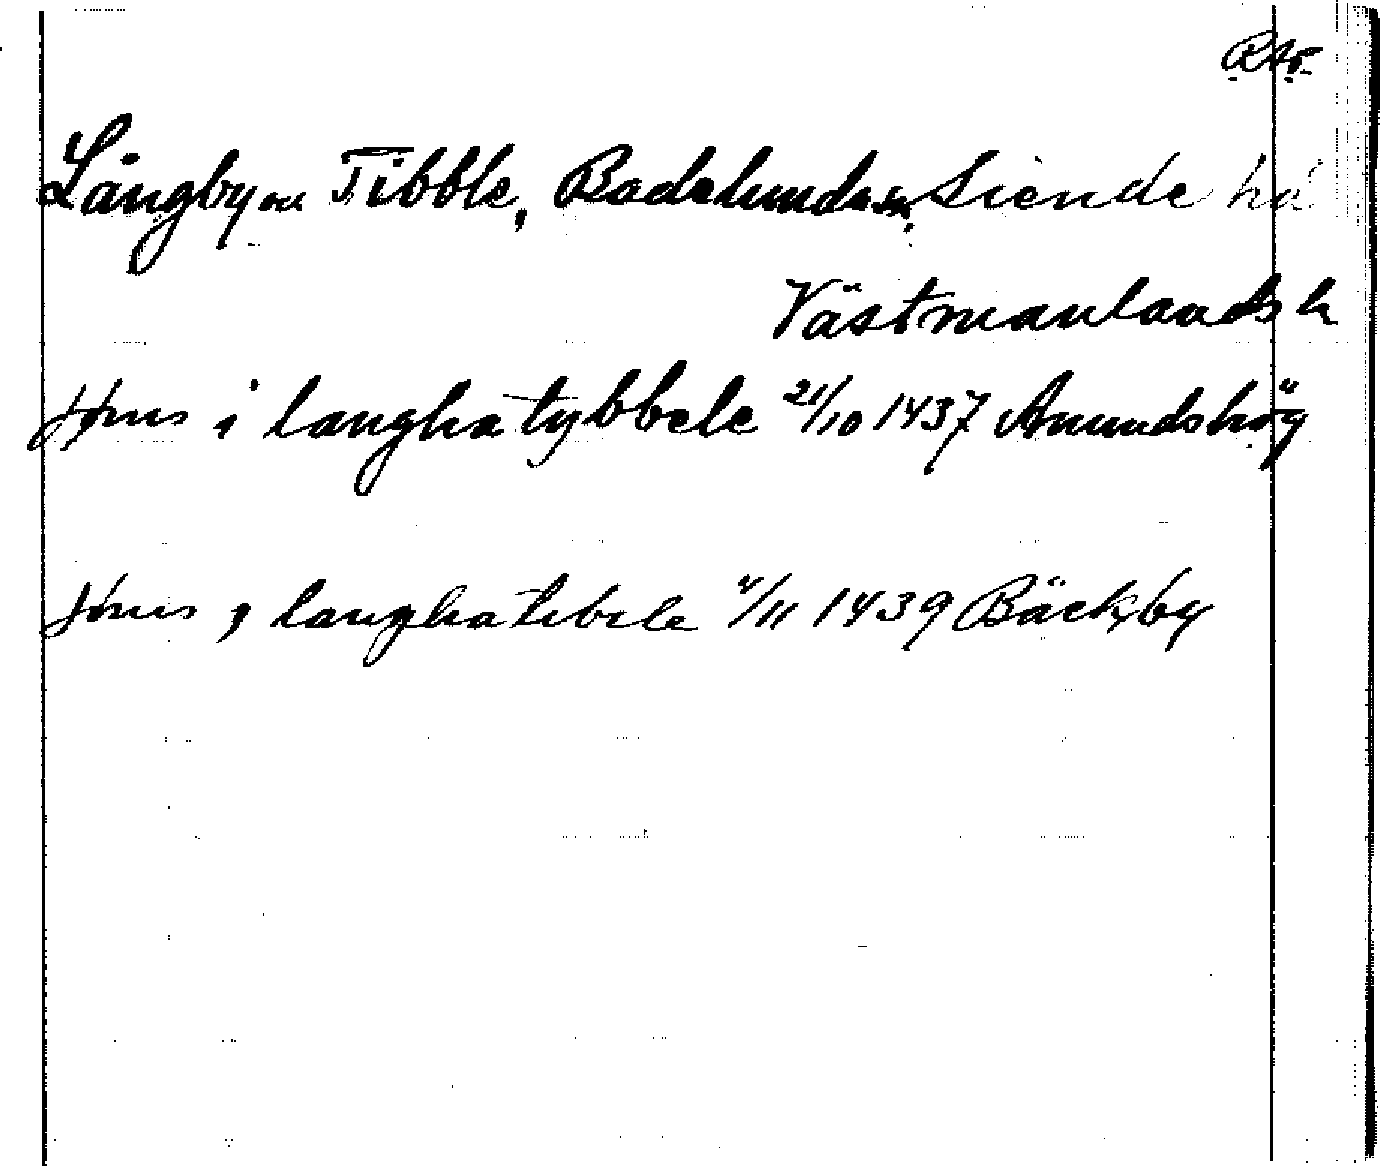 RAp.
Långby och Tibble, Badelunda sn, Siende hd
Västmanlands l
Jöns i langhatybbele 21/10 1437 Anundshög
Jöns j langhatibele 4/11 1439 Bäckby